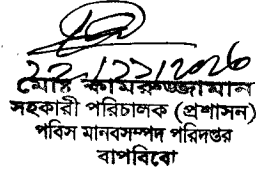 ২২/১১/২০২৬
মোঃ কামরুজ্জামান
সহকারী পরিচালক (প্রশাসন)
পবিস মানবসম্পদ পরিদপ্তর
বাপবিবো